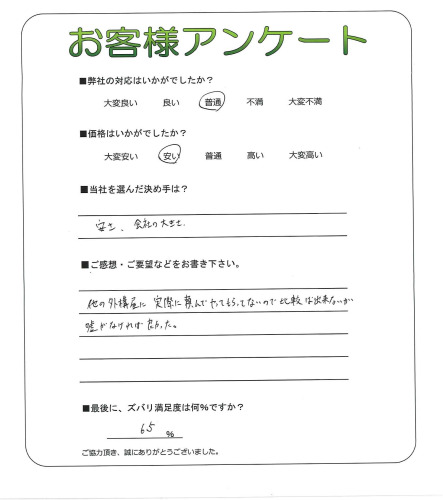 お客様アンケート
■弊社の対応はいかがでしたか？
大変良い 良い 普通 不満 大変不満
■価格はいかがでしたか？
大変安い 安い 普通 高い 大変高い
■当社を選んだ決め手は？
安さ、会社の大きさ
■ご感想・ご要望などをお書き下さい。
他の外構屋に実際に頼んでやってもらってないので比較は出来ないが
嘘がなければ良かった。
■最後に、ズバリ満足度は何％ですか？
65 ％
ご協力頂き、誠にありがとうございました。